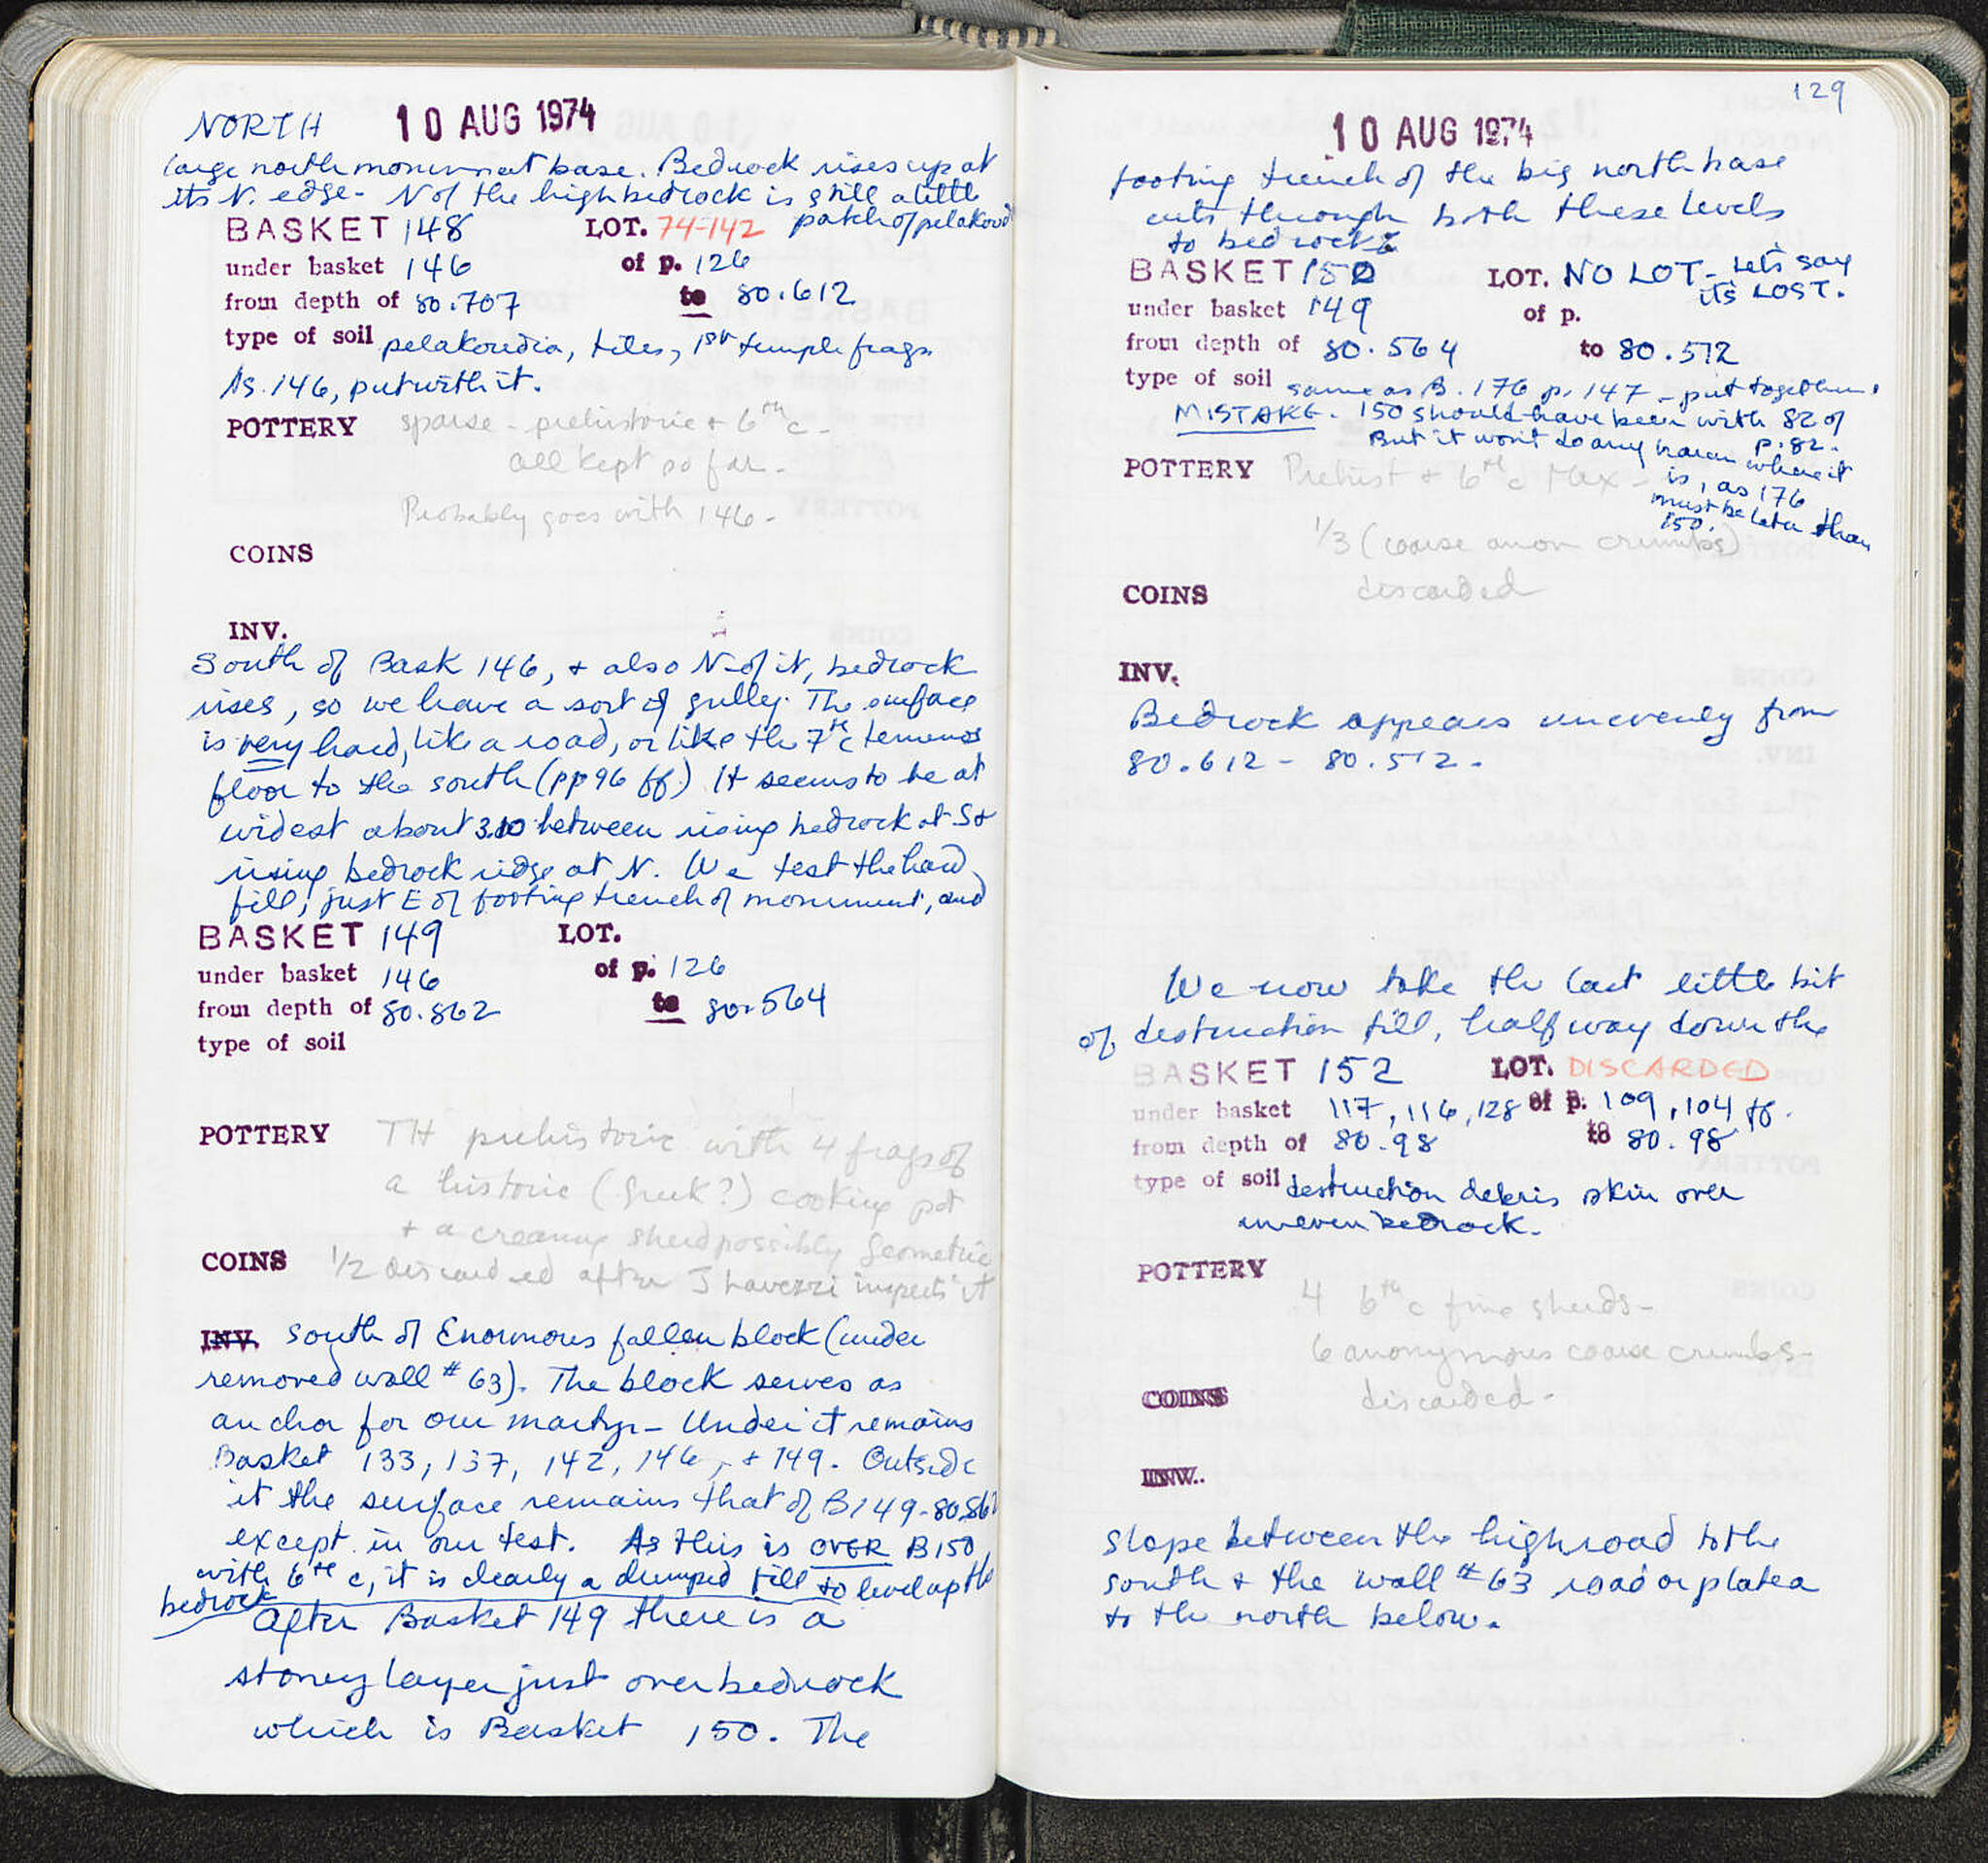 NORTH 10 AUG 1974
large north monument base. Bedrock rises up at
its N. edge - N of the high bedrock is still a little
patch of pelakoud
BASKET 148 LOT. 74-142
under basket 146 of p. 126
from depth of 80.707 to 80.612
type of soil pelakoudia, tiles, 1st temple frags.
As 146, put with it.
POTTERY sparse - prehistoric + 6th c -
all kept so far -
Probably goes with 146 -
COINS
INV.
South of Bask 146, + also N of it, bedrock
rises, so we have a sort of gulley. The surface
is very hard, like a road, or like the 7th c temenos
floor to the south (pp 96 ff.) It seems to be at
widest about 3.10 between rising bedrock at S +
rising bedrock ridge at N. We test the hard
fill, just E of footing trench of monument, and
BASKET 149 LOT.
under basket 146 of p. 126
from depth of 80.862 to 80.564
type of soil
POTTERY TH prehistoric with 4 frags of
a historic (Greek?) cooking pot
+ a creamy sherd possibly Geometric
COINS 1/2 discarded after J inspects it
INV. South of Enormous fallen block (under
removed wall #63). The block serves as
anchor for our martyr - Under it remains
Basket 133, 137, 142, 146, + 149. Outside
it the surface remains that of B149 - 80.862
except in our test. As this is OVER B150
with 6th c, it is clearly a dumped fill to level up the
bedrock
After Basket 149 there is a
stoney layer just over bedrock
which is Basket 150. The
129
10 AUG 1974
footing trench of the big north base
cuts through both these levels
to bedrock
BASKET 150 LOT. NO LOT - Let's say
its LOST.
under basket 149 of p.
from depth of 80.564 to 80.512
type of soil same as B. 176 p. 147 - put together.
MISTAKE. 150 should have been with 82 of
p. 82.
But it won't do any harm where it
is, as 176
must be later than
150.
POTTERY Prehist + 6th c Mix -
1/3 (coarse anon crumbs)
discarded
COINS
INV.
Bedrock appears unevenly from
80.612 - 80.512.
We now take the last little bit
of destruction fill, halfway down the
BASKET 152 LOT. DISCARDED
under basket 117, 116, 128 of p. 109, 104 ff.
from depth of 80.98 to 80.98
type of soil destruction debris skin over
uneven bedrock.
POTTERY
4 6th c fine sherds -
6 anonymous coarse crumbs -
COINS discarded -
INV.
slope between the high road to the
south + the wall #63 road or platea
to the north below.